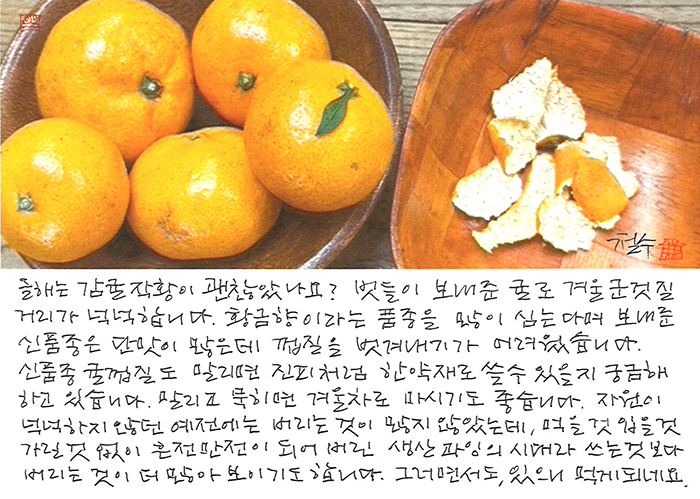 철수
올해는 감귤작황이 괜찮았나요? 벗들이 보내준 귤로 겨울군것질
거리가 넉넉합니다. 황금향이라는 품종을 많이 심는다며 보내준
신품종은 단맛이 많은데 껍질을 벗겨내기가 어려웠습니다.
신품종 귤껍질도 말리면 진피처럼 한약재로 쓸수 있을지 궁금해
하고 있습니다. 말리고 묵히면 겨울차로 마시기도 좋습니다. 자원이
넉넉하지 않던 예전에는 버리는 것이 많지 않았는데, 먹을것 입을것
가릴 것 없이 흔전만전이 되어 버린 생산 과잉의 시대라 쓰는것 보다
버리는 것이 더 많아 보이기도 합니다. 그러면서도, 있으니 먹게되네요.